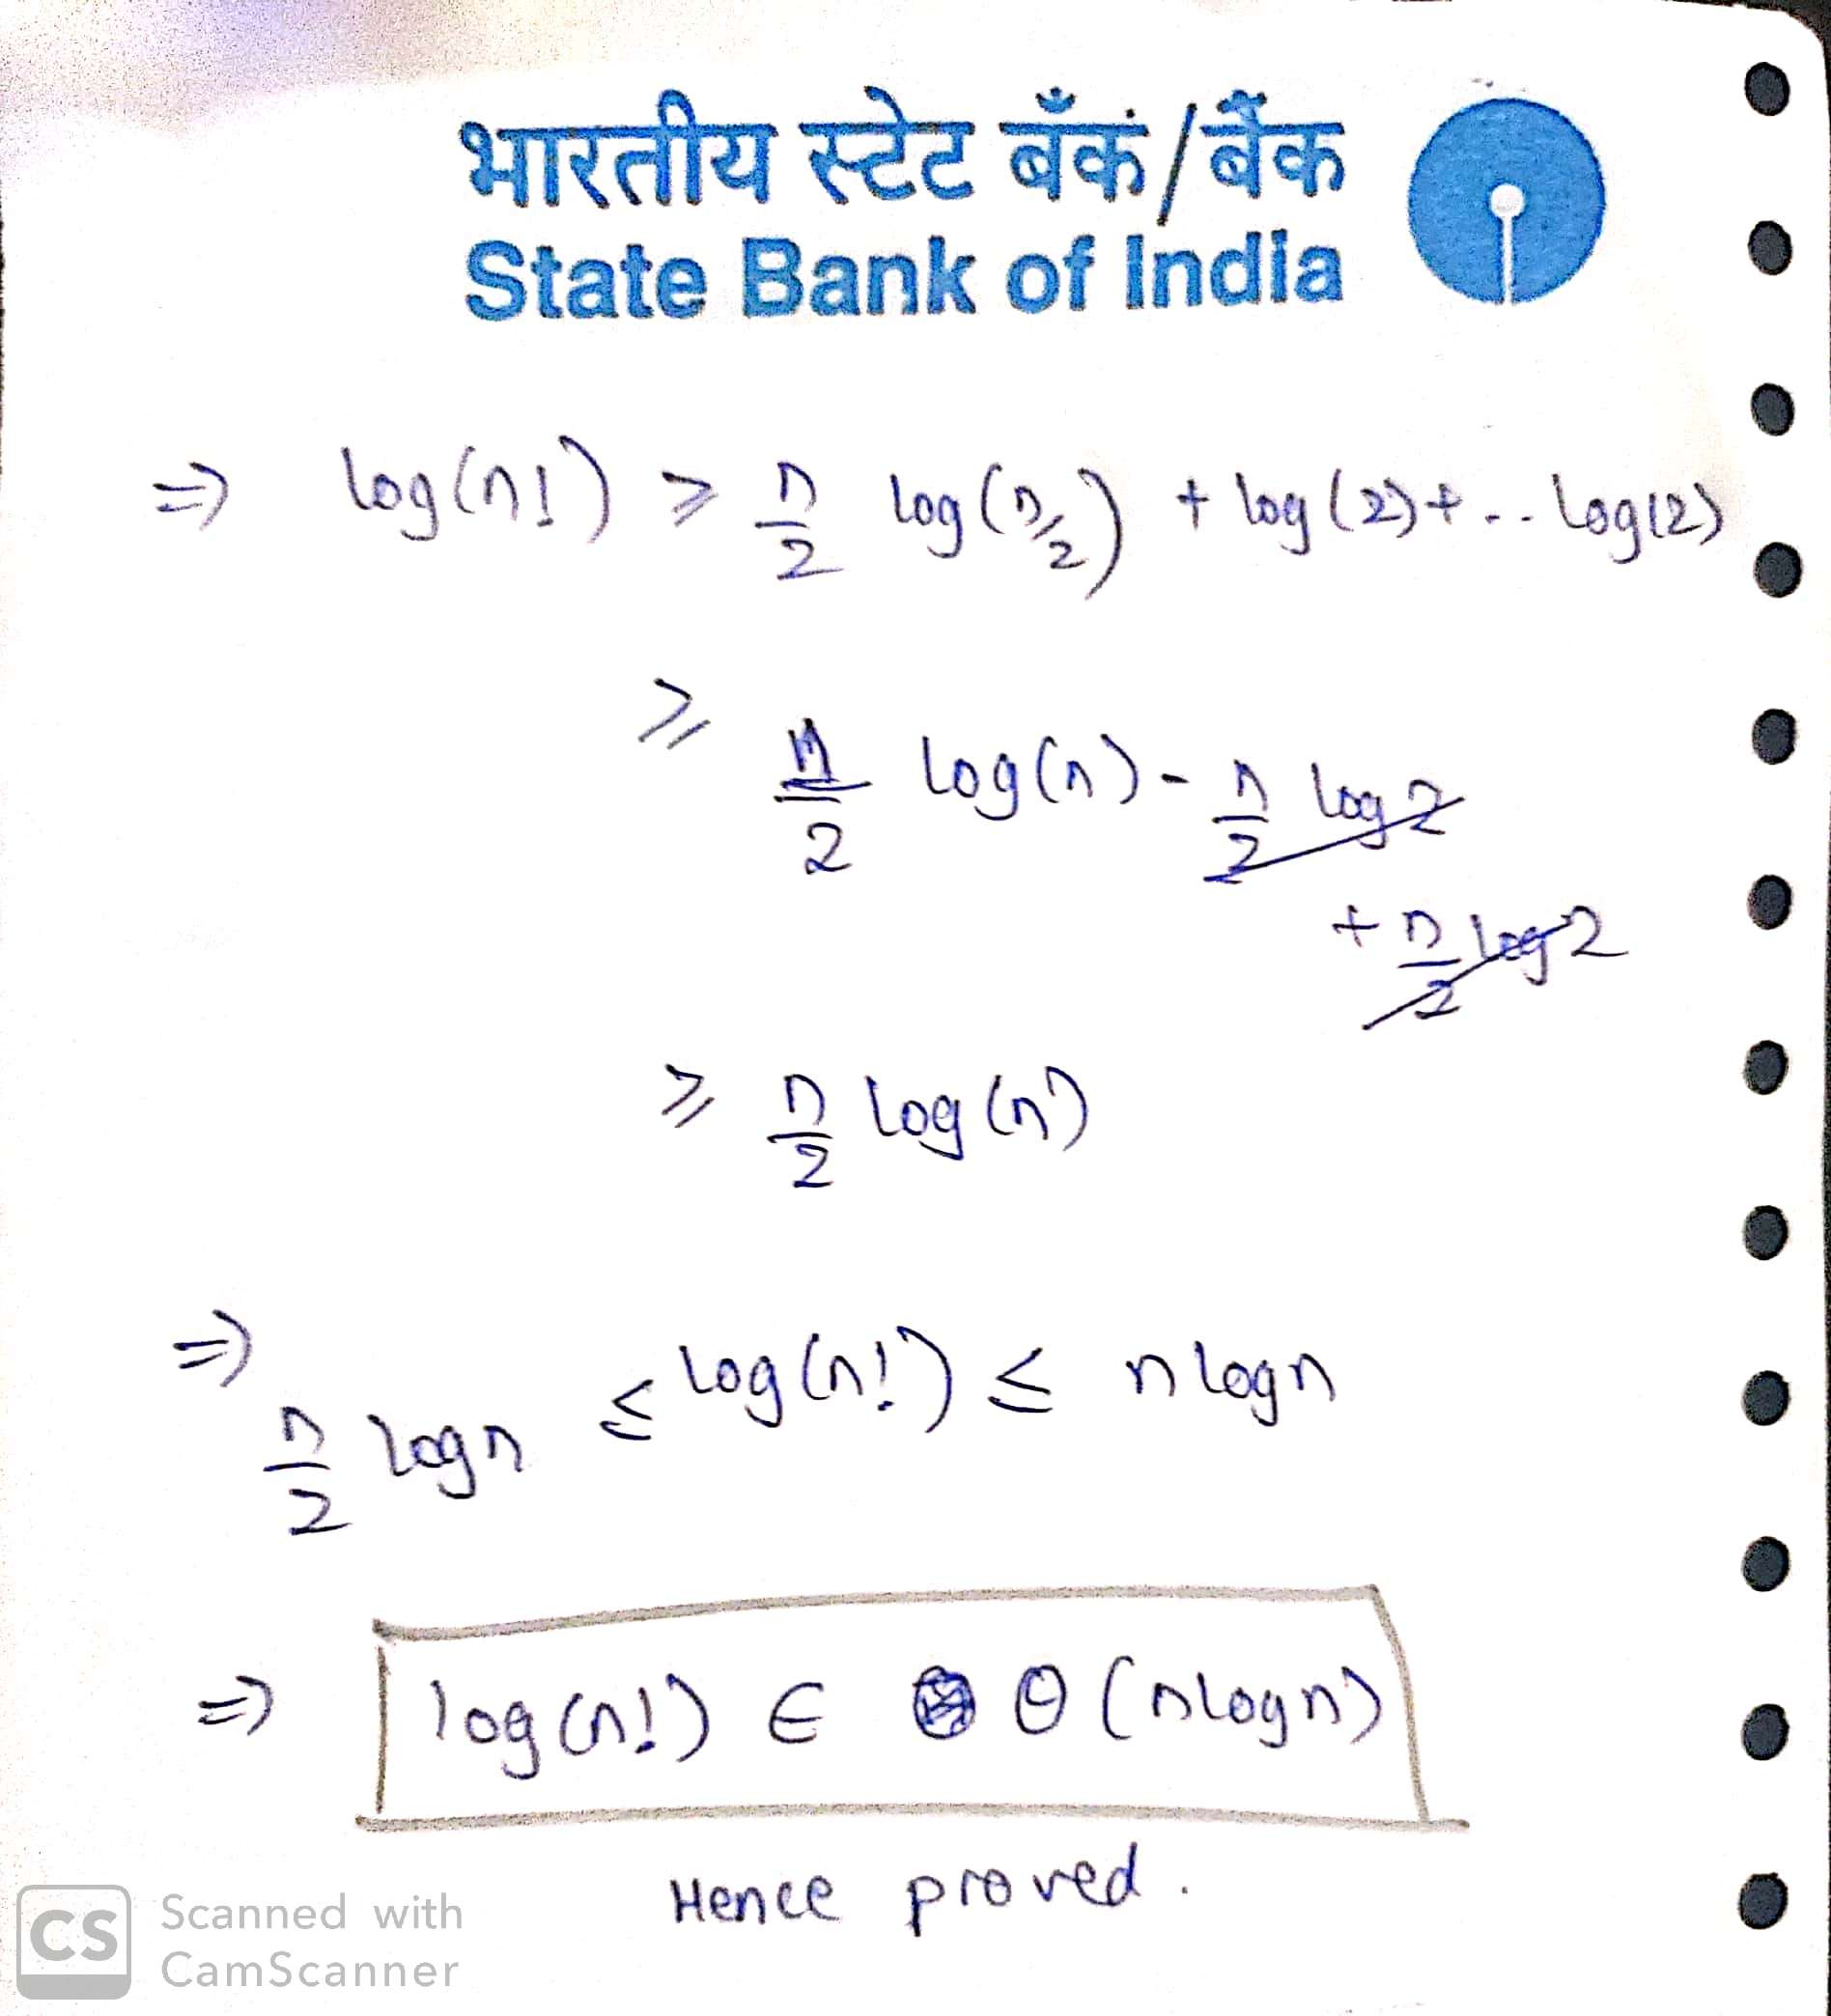 भारतीय स्टेट बँक/बैंक
State Bank of India
=> log(n!) ≥ n/2 log(n/2) + log(2)+... log(2)
≥ n/2 log(n) - n/2 log 2
+ n/2 log 2
≥ n/2 log(n)
=> n/2 logn ≤ log(n!) ≤ n logn
=> log(n!) ∈ Θ (nlogn)
Hence proved.
CS Scanned with
CamScanner